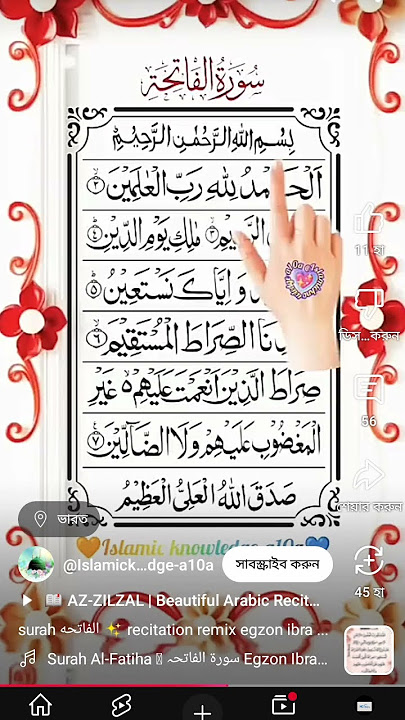 سُوْرَةُ الْفَاتِحَةِ
بِسْمِ اللهِ الرَّحْمٰنِ الرَّحِيْمِ
اَلْحَمْدُ لِلّٰهِ رَبِّ الْعٰلَمِيْنَ ﴿٢﴾
﴿٣﴾ مٰلِكِ يَوْمِ الدِّيْنِ ﴿٤﴾
وَ اِيَّاكَ نَسْتَعِيْنُ ﴿٥﴾
الصِّرَاطَ الْمُسْتَقِيْمَ ﴿٦﴾
صِرَاطَ الَّذِيْنَ اَنْعَمْتَ عَلَيْهِمْ ە غَيْرِ
الْمَغْضُوْبِ عَلَيْهِمْ وَلَا الضَّآلِّيْنَ ﴿٧﴾
صَدَقَ اللهُ الْعَلِيُّ الْعَظِيْمُ
11 হা
ডিস...করুন
56
শেয়ার করুন
45 হা
ভারত
🧡Islamic knowledge a10a💙
@Islamick...dge-a10a
সাবস্ক্রাইব করুন
▶ 📖 AZ-ZILZAL | Beautiful Arabic Recit...
surah الفاتحه ✨ recitation remix egzon ibra ...
Surah Al-Fatiha سورة الفاتحہ Egzon Ibra...